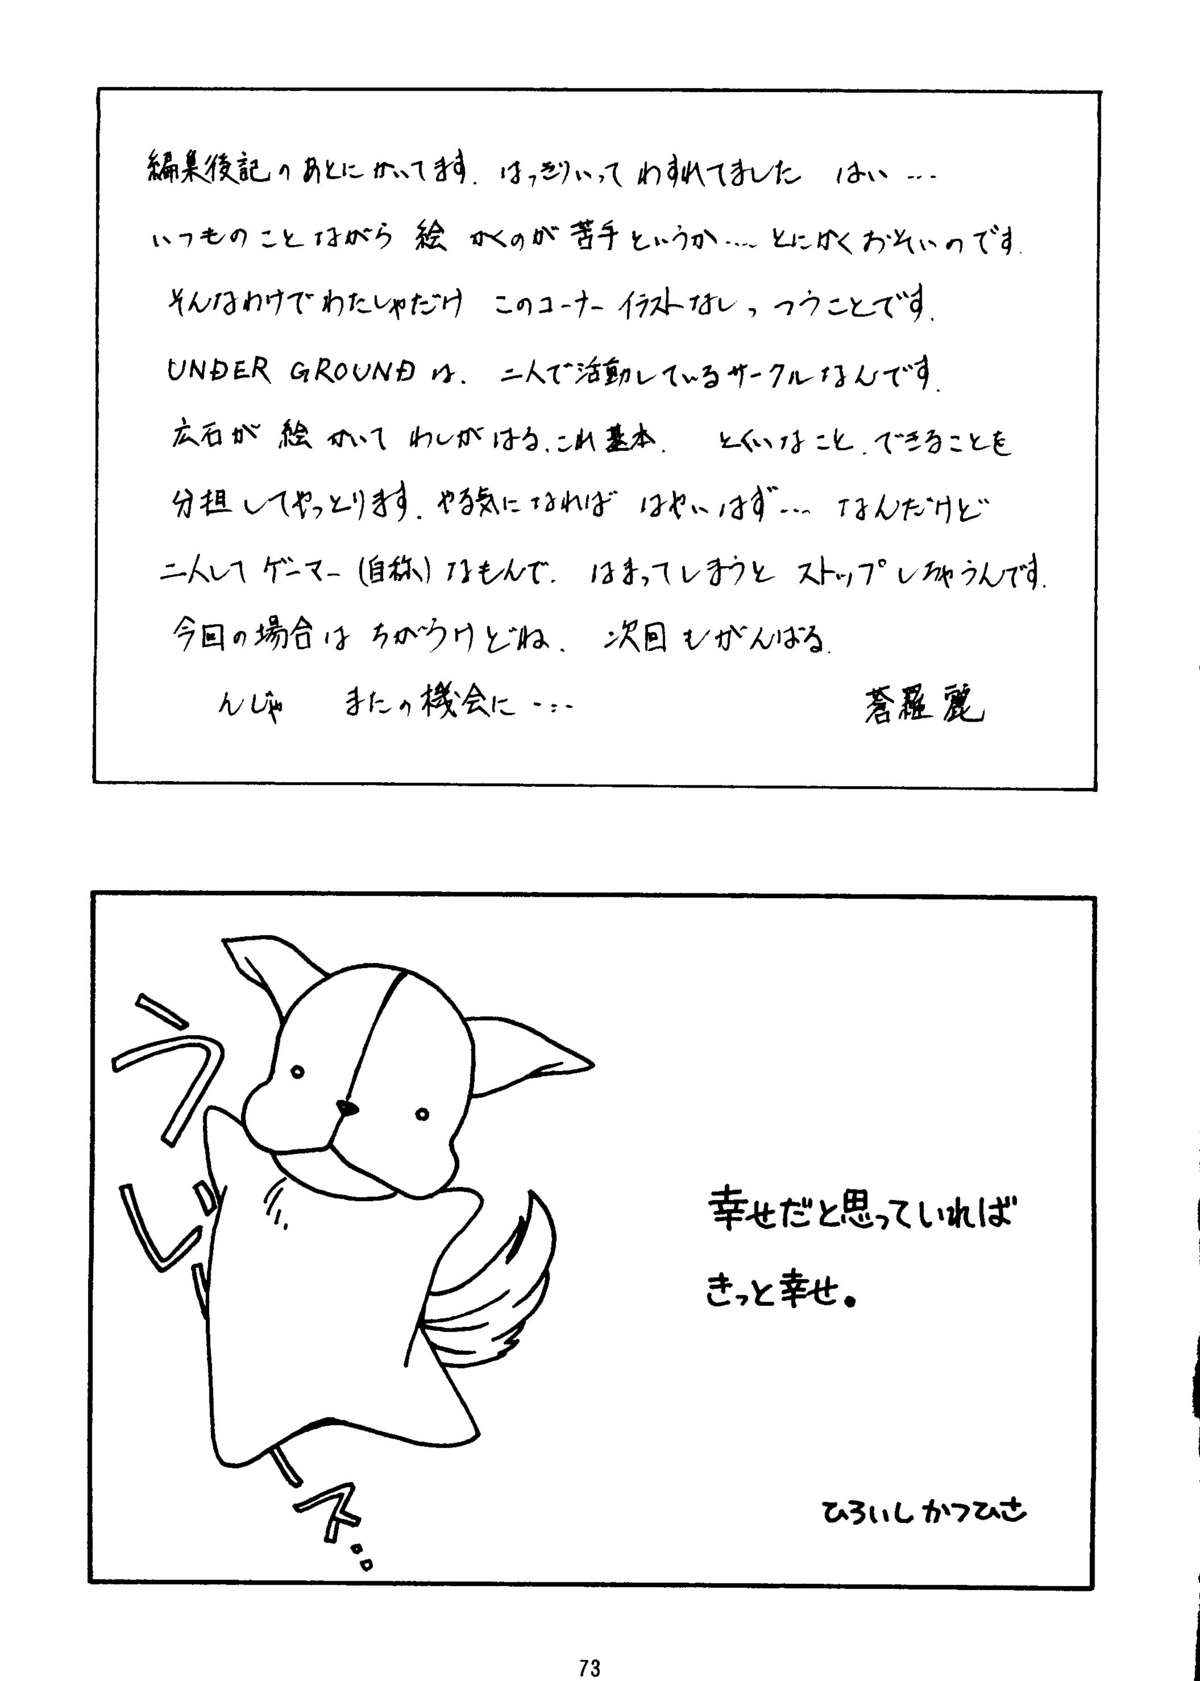 編集後記のあとにかいてます. はっきりいって わすれてました はい…
いつものことながら 絵 かくのが苦手というか…. とにかくおそいのです.
そんなわけでわたしゃだけ このコーナー イラストなしっ つうことです.
UNDER GROUND は、二人で活動しているサークルなんです.
広石が 絵 かいて わしがはる、これ基本. とくいなこと、できることを
分担してやっとります. やる気になれば はやいはず…. なんだけど
二人して ゲーマー(自称)なもんで、 はまってしまうと ストップしちゃうんです.
今回の場合は ちがうけどね. 次回もがんばる.
んじゃ またの機会に….
蒼羅 麗
幸せだと思っていれば
きっと幸せ。
ひろいし かつひさ
73